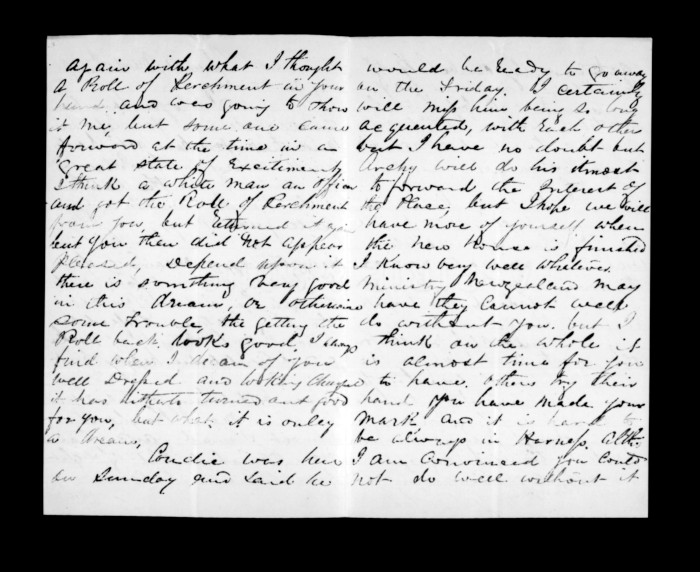 again with what I thought
a Roll of Perchment in your
hand and was going to show
it me, but some one came
forword at the time in a
great state of Excitement
I think a white man an officer
and got the Roll of Perchment
from you, but Returned it you
but you then did not appear
pleased, Depend upon it
there is something very good
in this dream, or otherwise
some trouble, the getting the
Roll back, looks good, I always
find when I dream of you
well Dressed and looking cheerful
it has turned out good
for you, but what it is onley
a dream,
Condie was here
on Sunday and said he
would be Ready to go away
on the Friday. I certainly
will miss him being so long
acquented, with Each other
but I have no doubt but
Archy will do his utmost
to forward the Interest of
the Place, but I hope we will
have more of yourself when
the new House is finished
I Know very well whatever
Ministry Newzealand may
have they cannot well
do without you. but I
think on the whole it
is almost time for you
to have others try their
hand you have made your
mark and it is hard to
be always in Harness. altho
I am convinced you could
not do well without it